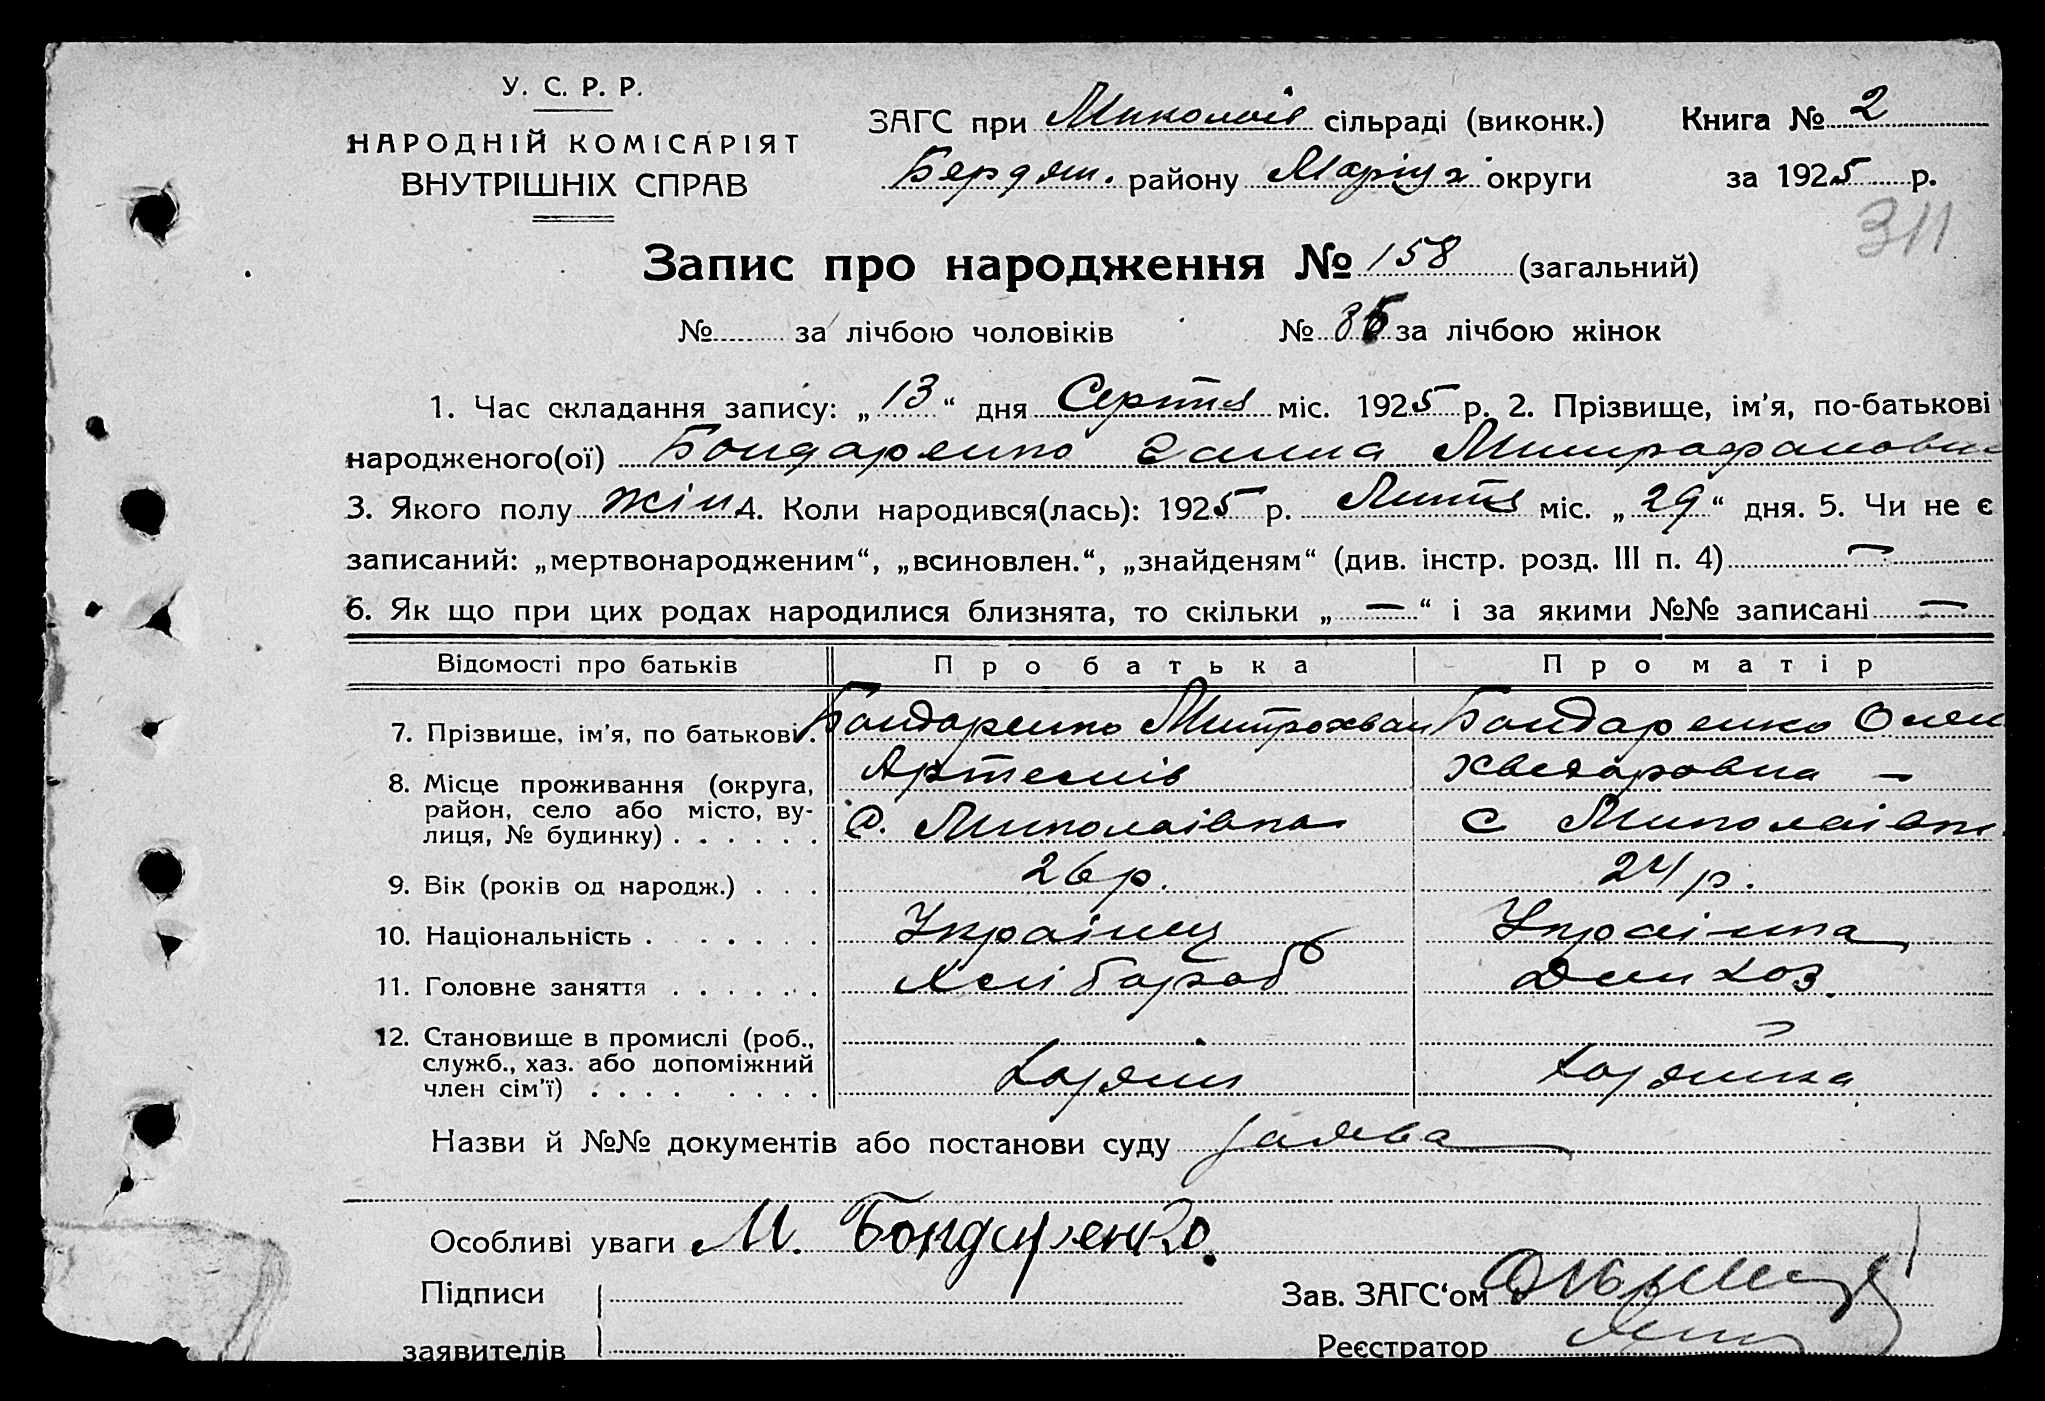 У. С. Р. Р.
НАРОДНІЙ КОМІСАРІЯТ
ВНУТРІШНІХ СПРАВ
ЗАГС при Миколаїв сільраді (виконк.) Книга № 2
Бердян. району Маріуп округи за 1925 р.
311
Запис про народження № 158 (загальний)
№ за лічбою чоловіків № 85 за лічбою жінок
1. Час складання запису: „13“ дня Серпня міс. 1925 р. 2. Прізвище, ім'я, по-батькові
народженого(ої) Бондаренко Ганна Митрафановна
3. Якого полу жін 4. Коли народився(лась): 1925 р. Липня міс. „29“ дня. 5. Чи не є
записаний: „мертвонародженим“, „всиновлен.“, „знайденям“ (див. інстр. розд. III п. 4) —
6. Як що при цих родах народилися близнята, то скільки „—“ і за якими №№ записані —
Відомості про батьків Про батька Про матір
7. Прізвище, ім'я, по батькові. Бондаренко Митрохван Бондаренко Олен
Артемів Хведаровна —
8. Місце проживання (округа,
район, село або місто, ву-
лиця, № будинку) . . . . . . с. Миколаівка с Миколаівка
9. Вік (років од народж.) . . . 26 р. 24 р.
10. Національність . . . . . . . Украінец Украінка
11. Головне заняття . . . . . . Хлібороб Дом хоз.
12. Становище в промислі (роб.,
служб., хаз. або допоміжний
член сім'ї) . . . . . . . . Хазяин Хазяйка
Назви й №№ документів або постанови суду заява
Особливі уваги М. Бондаренко.
Підписи
заявителів
Зав. ЗАГС‘ом
Реєстратор